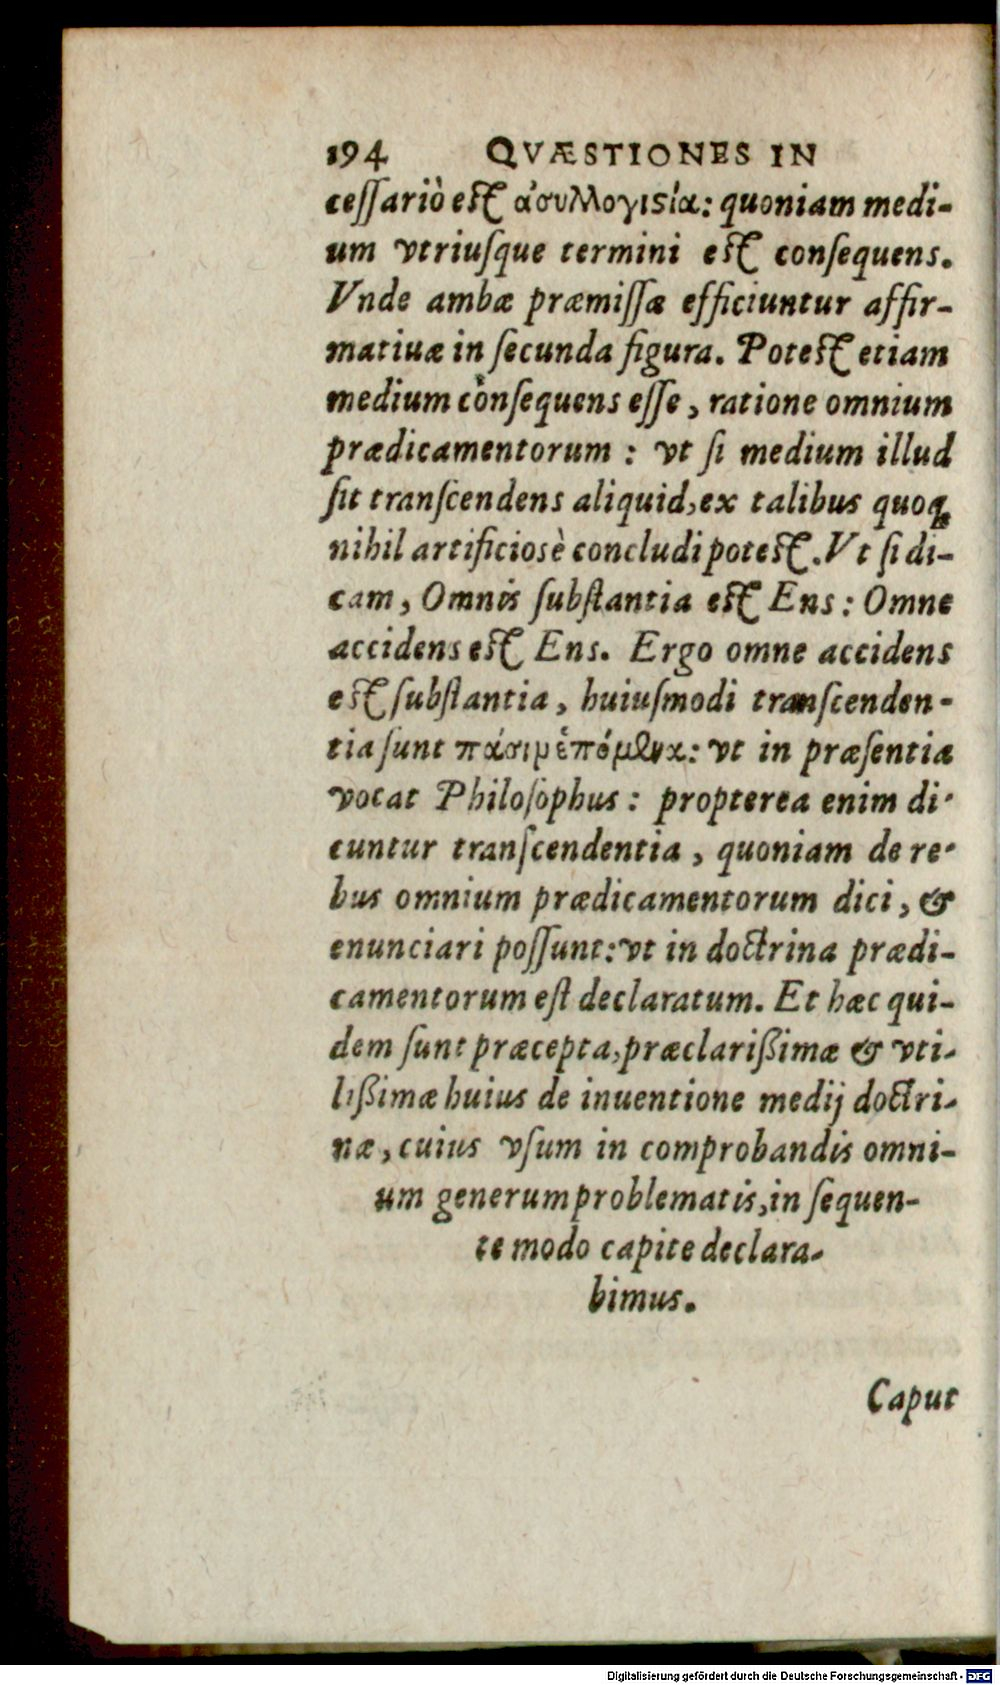 194 QVÆSTIONES IN
ceſſariò eſt ἀσυλλογισία: quoniam medi-
um vtriuſque termini eſt conſequens.
Vnde ambæ præmiſſæ efficiuntur affir-
matiuæ in ſecunda figura. Poteſt etiam
medium cònſequens eſſe, ratione omnium
prædicamentorum: vt ſi medium illud
ſit tranſcendens aliquid, ex talibus quoq́
nihil artificiosè concludi poteſt. Vt ſi di-
cam, Omnis ſubſtantia eſt Ens: Omne
accidens eſt Ens. Ergo omne accidens
eſt ſubſtantia, huiuſmodi tranſcenden-
tia ſunt πάσιμ ἑπόμϟνα: vt in præſentia
vocat Philoſophus: propterea enim di-
cuntur tranſcendentia, quoniam de re-
bus omnium prædicamentorum dici, &
enunciari poſſunt: vt in doctrina prædi-
camentorum eſt declaratum. Et hæc qui-
dem ſunt præcepta, præclariſſimæ & vti-
liſſimæ huius de inuentione medij doctri-
næ, cuius vſum in comprobandis omni-
um generum problematis, in ſequen-
te modo capite declara-
bimus.
Caput
Digitalisierung gefördert durch die Deutsche Forschungsgemeinschaft - DFG